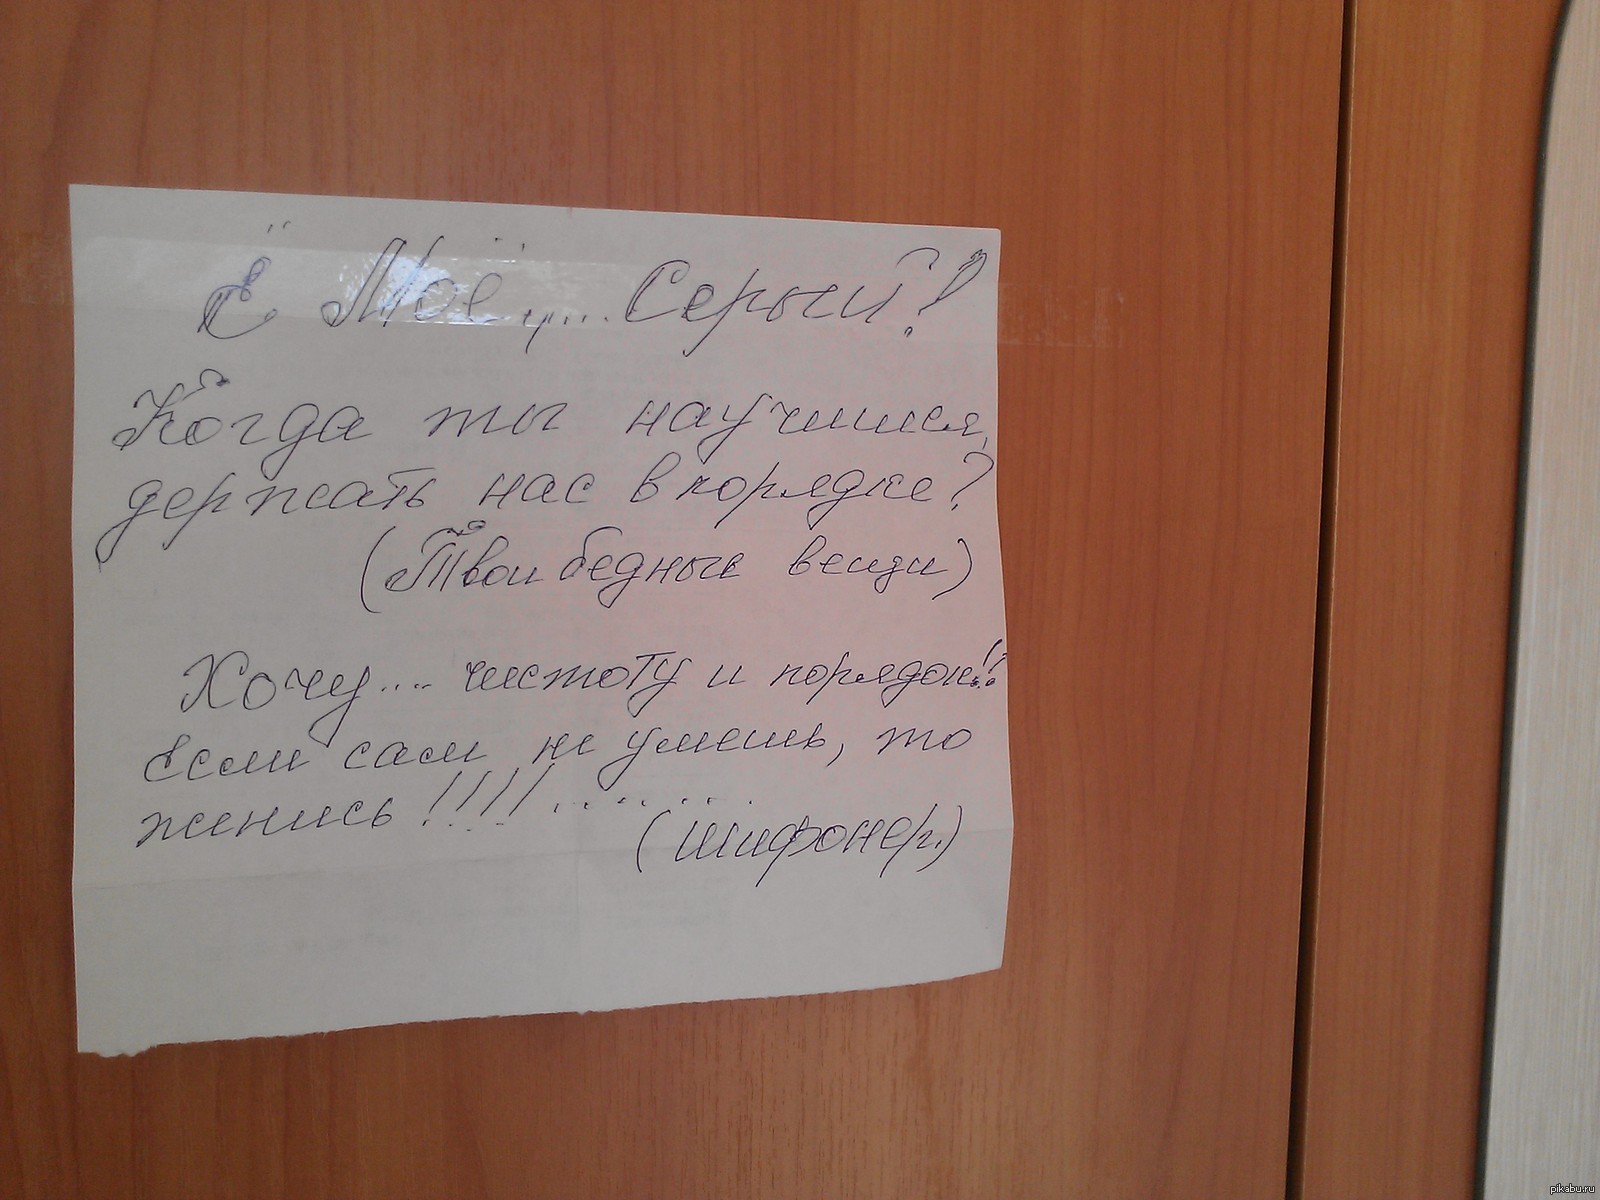 Ё Моё,.... Серый?!
Когда ты научишся,
держать нас в порядке?
(Твои бедные вещи)
Хочу.... чистоту и порядок!!
Если сам не умешь, то
женись!!!!.......
(Шифонер.)
pikabu.ru